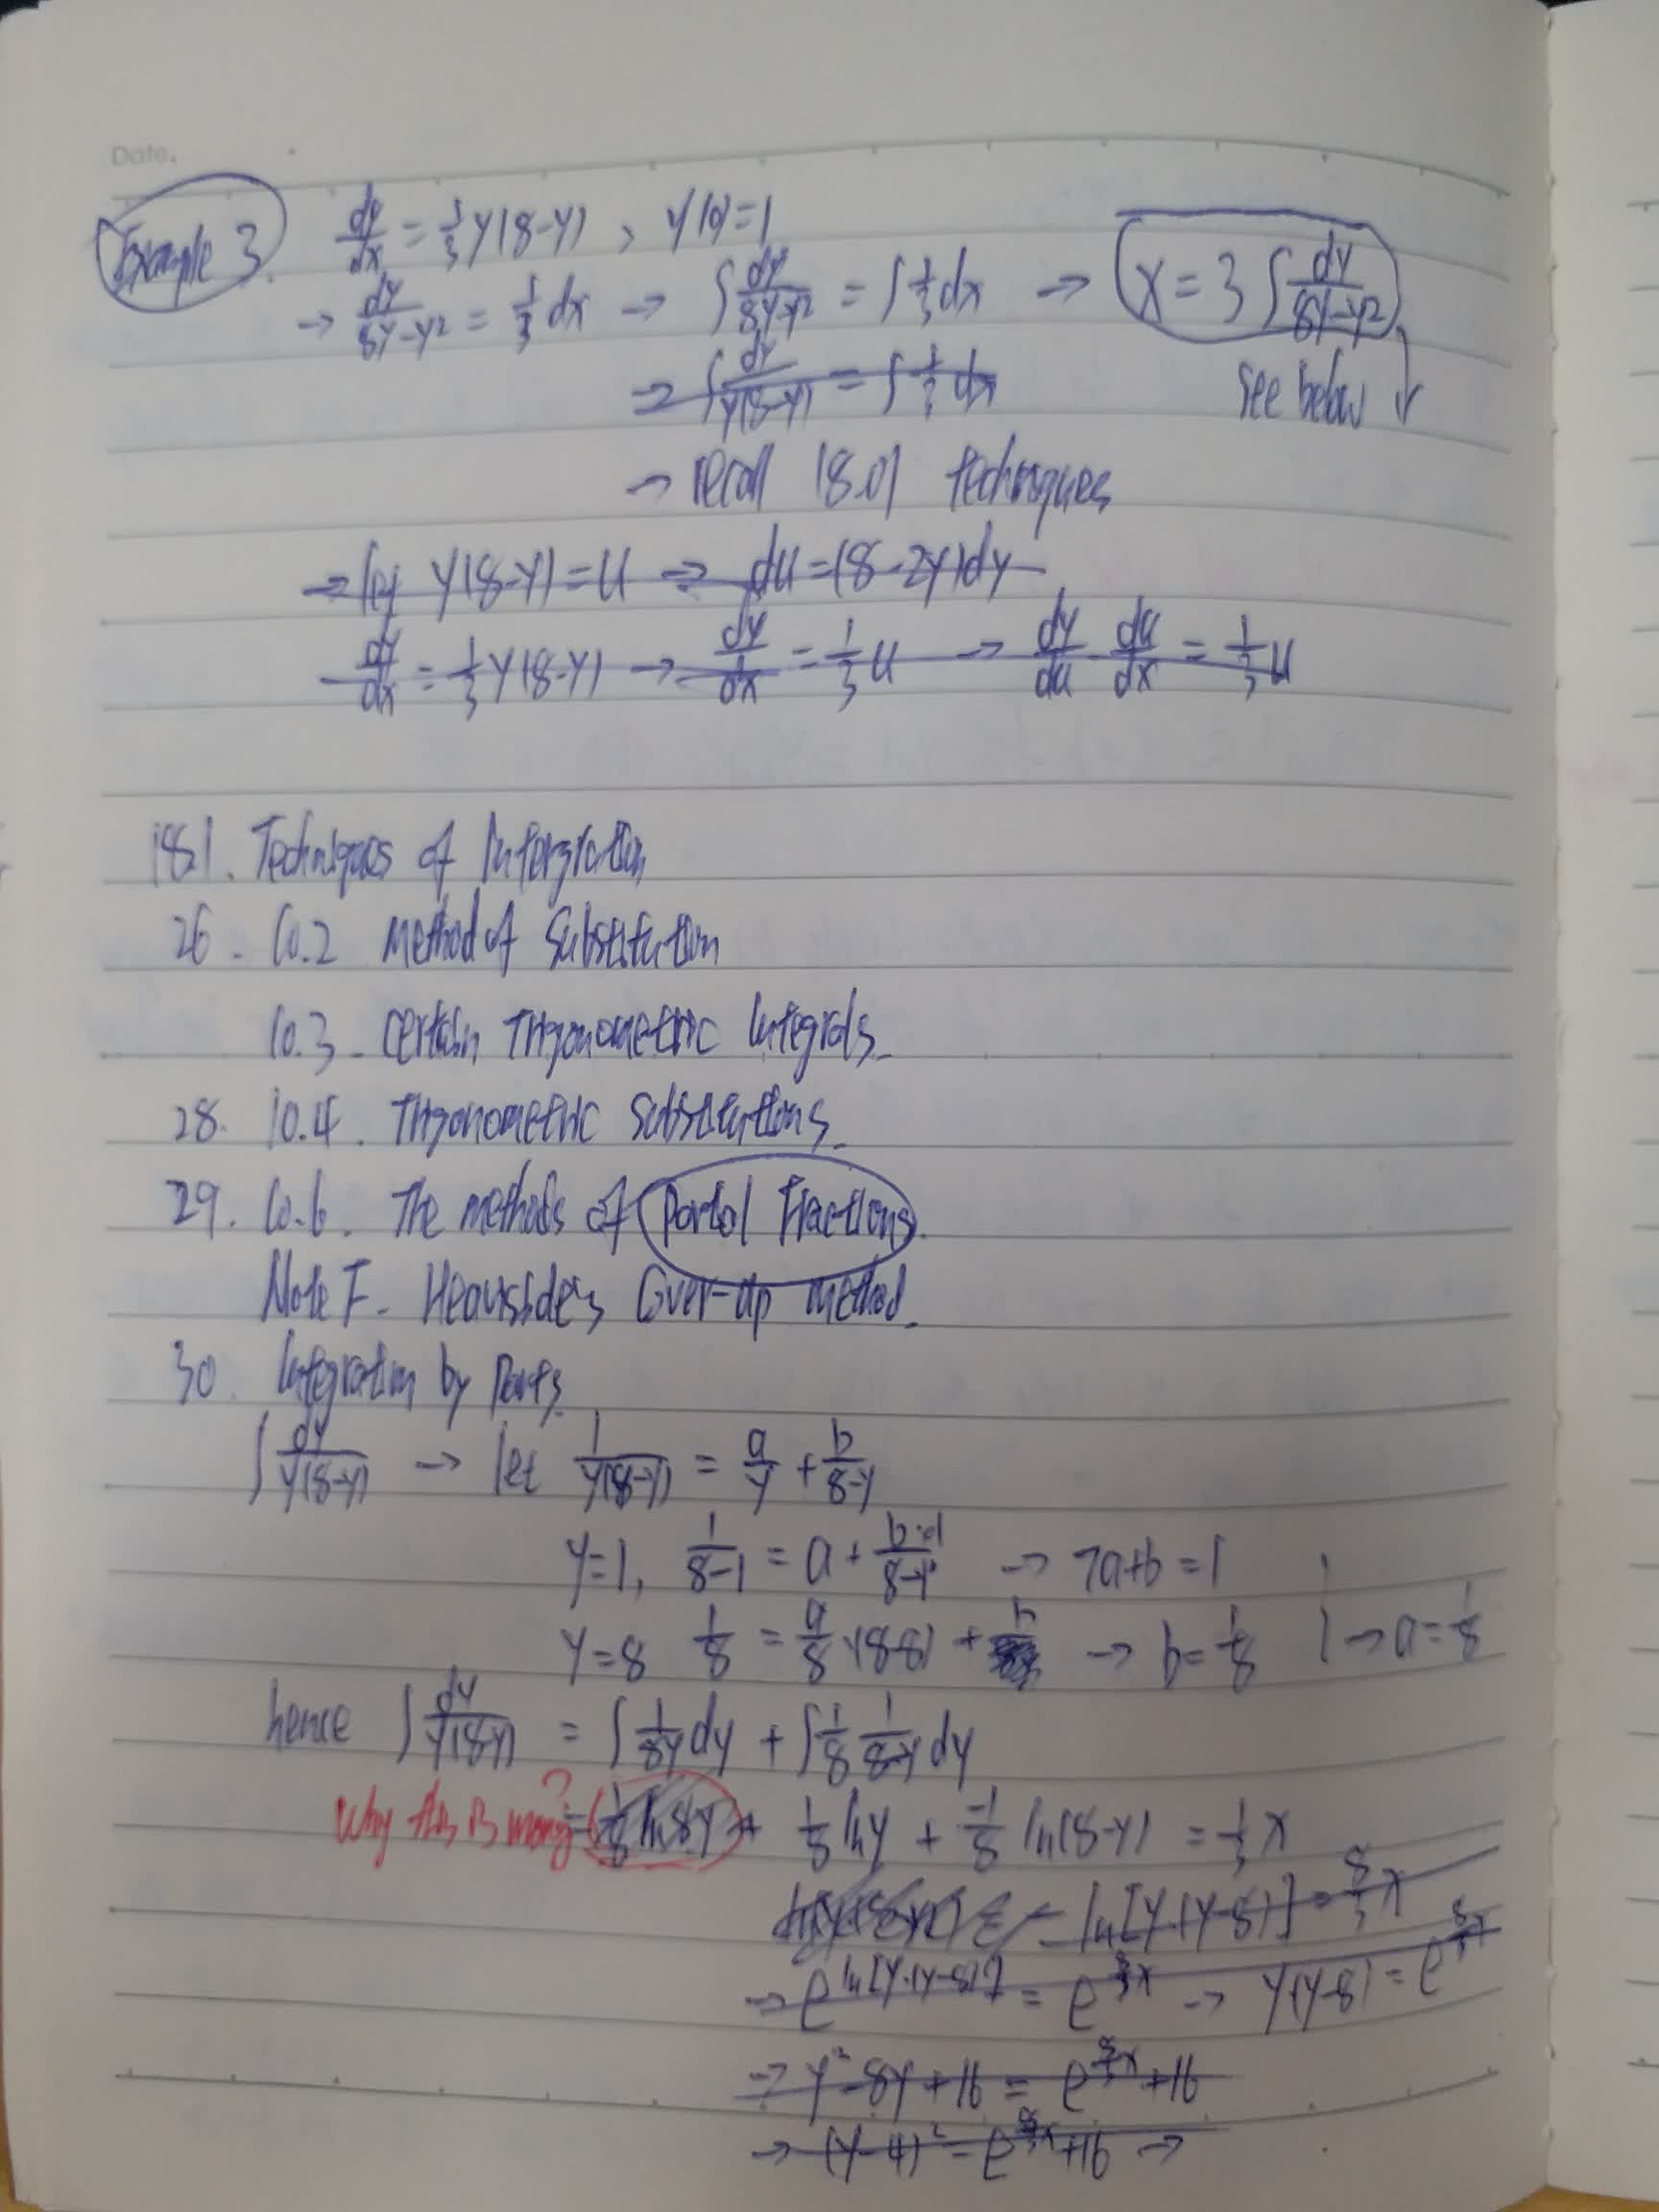 Date.
Example 3. dy/dx = 1/3 y(8-y) , y(0)=1
→ dy/8y-y² = 1/3 dx → ∫ dy/8y-y² = ∫ 1/3 dx → x = 3 ∫ dy/8y-y²
→ ∫ dy/y(8-y) = ∫ 1/3 dx see below ↓
→ recall 18.01 techniques
→ let y(8-y) = u → du = (8-2y)dy
dy/dx = 1/3 y(8-y) → dy/dx = 1/3 u → dy/du du/dx = 1/3 u
18.1. Techniques of Intergration
26 - 10.2 Method of Substitution
10.3 - Certain Trigonometric Integrals.
28. 10.4. Trigonometric Substitutions.
29. 10.6. The methods of Partial Fractions.
Note F. Heavisides Cover-up method.
30. Integration by Parts.
∫ dy/y(8-y) → let 1/y(8-y) = a/y + b/8-y
y=1, 1/8-1 = a + b·1/8-1 → 7a+b = 1
y=8 1/8 = a/8 ·(8-8) + b → b = 1/8 → a = 1/8
hence ∫ dy/y(8-y) = ∫ 1/8y dy + ∫ 1/8 1/8-y dy
Why this is wrong? = 1/8 ln 8y + 1/8 ln y + -1/8 ln(8-y) = 1/3 x
ln[y·(y-8)] = 8/3 x
→ e^ln[y·(y-8)] = e^8/3x → y(y-8) = e^8/3x
→ y²-8y+16 = e^8/3x +16
→ (y-4)² = e^8/3x +16 →